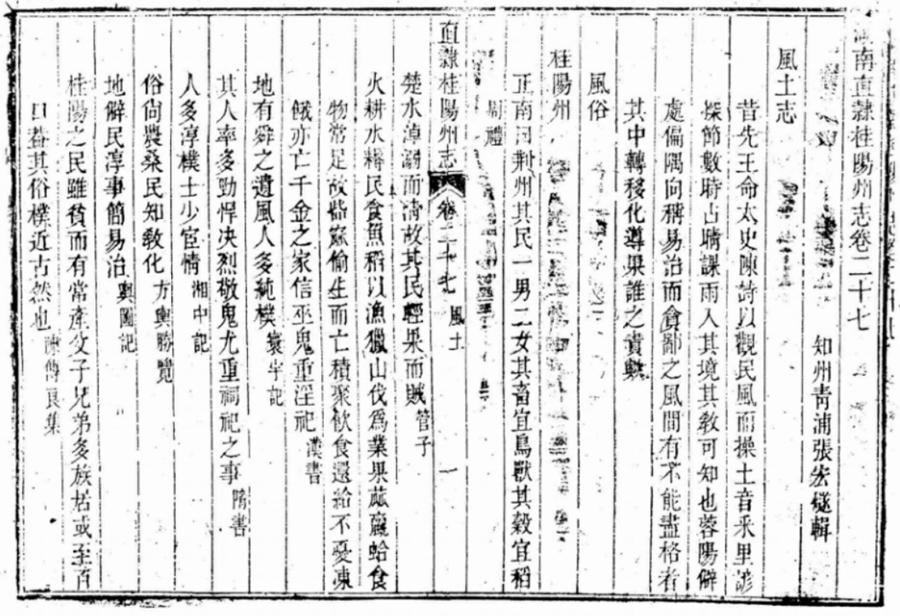 湖南直隸桂陽州志卷二十七
知州青浦張宏燧輯
風土志
昔先王命太史陳詩以觀民風而操土音采里諺
採節數時占晴課雨入其境其教可知也蓉陽僻
處偏隅向稱易治而貪鄙之風間有不能盡格者
其中轉移化導果誰之責歟
風俗
桂陽州
正南曰荆州其民一男二女其畜宜鳥獸其穀宜稻
周禮
直隸桂陽州志 卷二十七 風土 一
楚水淖弱而清故其民輕果而賊管子
火耕水耨民食魚稻以漁獵山伐爲業果蓏蠃蛤食
物常足故呰窳偷生而亡積聚飲食還給不憂凍
餓亦亡千金之家信巫鬼重淫祀漢書
地有舜之遺風人多純樸寰宇記
其人率多勁悍决烈敬鬼尤重祠祀之事隋書
人多淳樸士少宦情湘中記
俗尚農桑民知敎化方輿勝覽
地僻民淳事簡易治輿圖記
桂陽之民雖貧而有常產父子兄弟多族居或至百
口蓋其俗樸近古然也陳傅良集